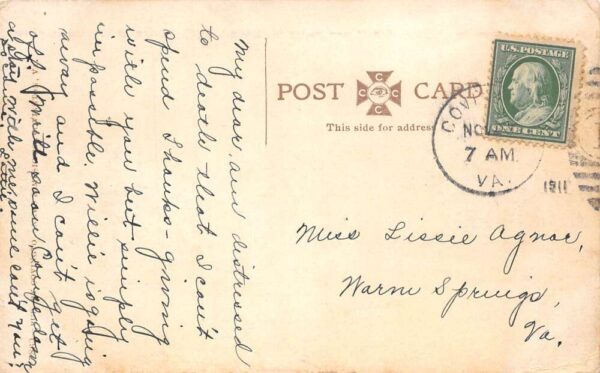 My dear, am distressed
to death that I can't
spend Thanks-giving
with you but simply
impossible. Willie is going
away and I can't get
off. Write soon. Come down
with me can't you?
POST CARD
C C C C
This side for address
U.S. POSTAGE
ONE CENT
COV
NO
7 AM.
VA.
1911
Miss Lissie Agnor,
Warm Springs,
Va.